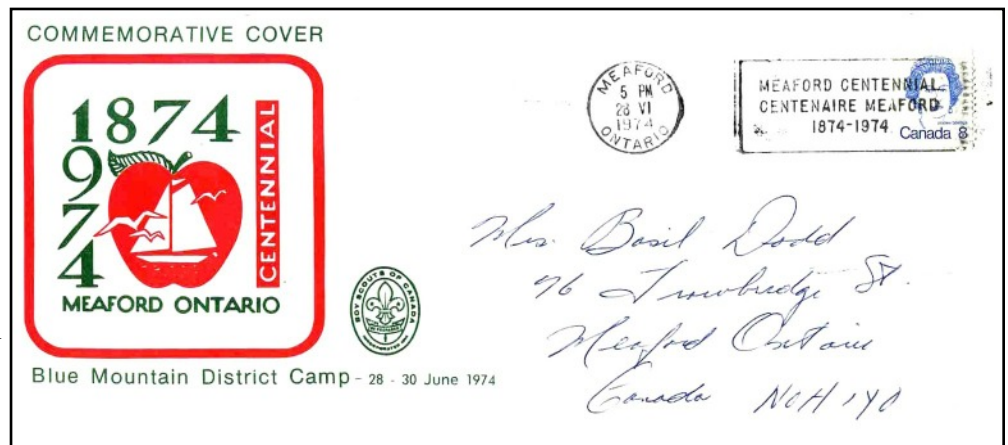 COMMEMORATIVE COVER
1874
1974
CENTENNIAL
MEAFORD ONTARIO
BOY SCOUTS OF CANADA
Blue Mountain District Camp - 28 - 30 June 1974
MEAFORD
5 PM
28 VI
1974
ONTARIO
MEAFORD CENTENNIAL
CENTENAIRE MEAFORD
1874-1974
Canada 8
Mrs. Basil Dodd
76 Trowbridge St.
Meaford Ontario
Canada N0H 1Y0